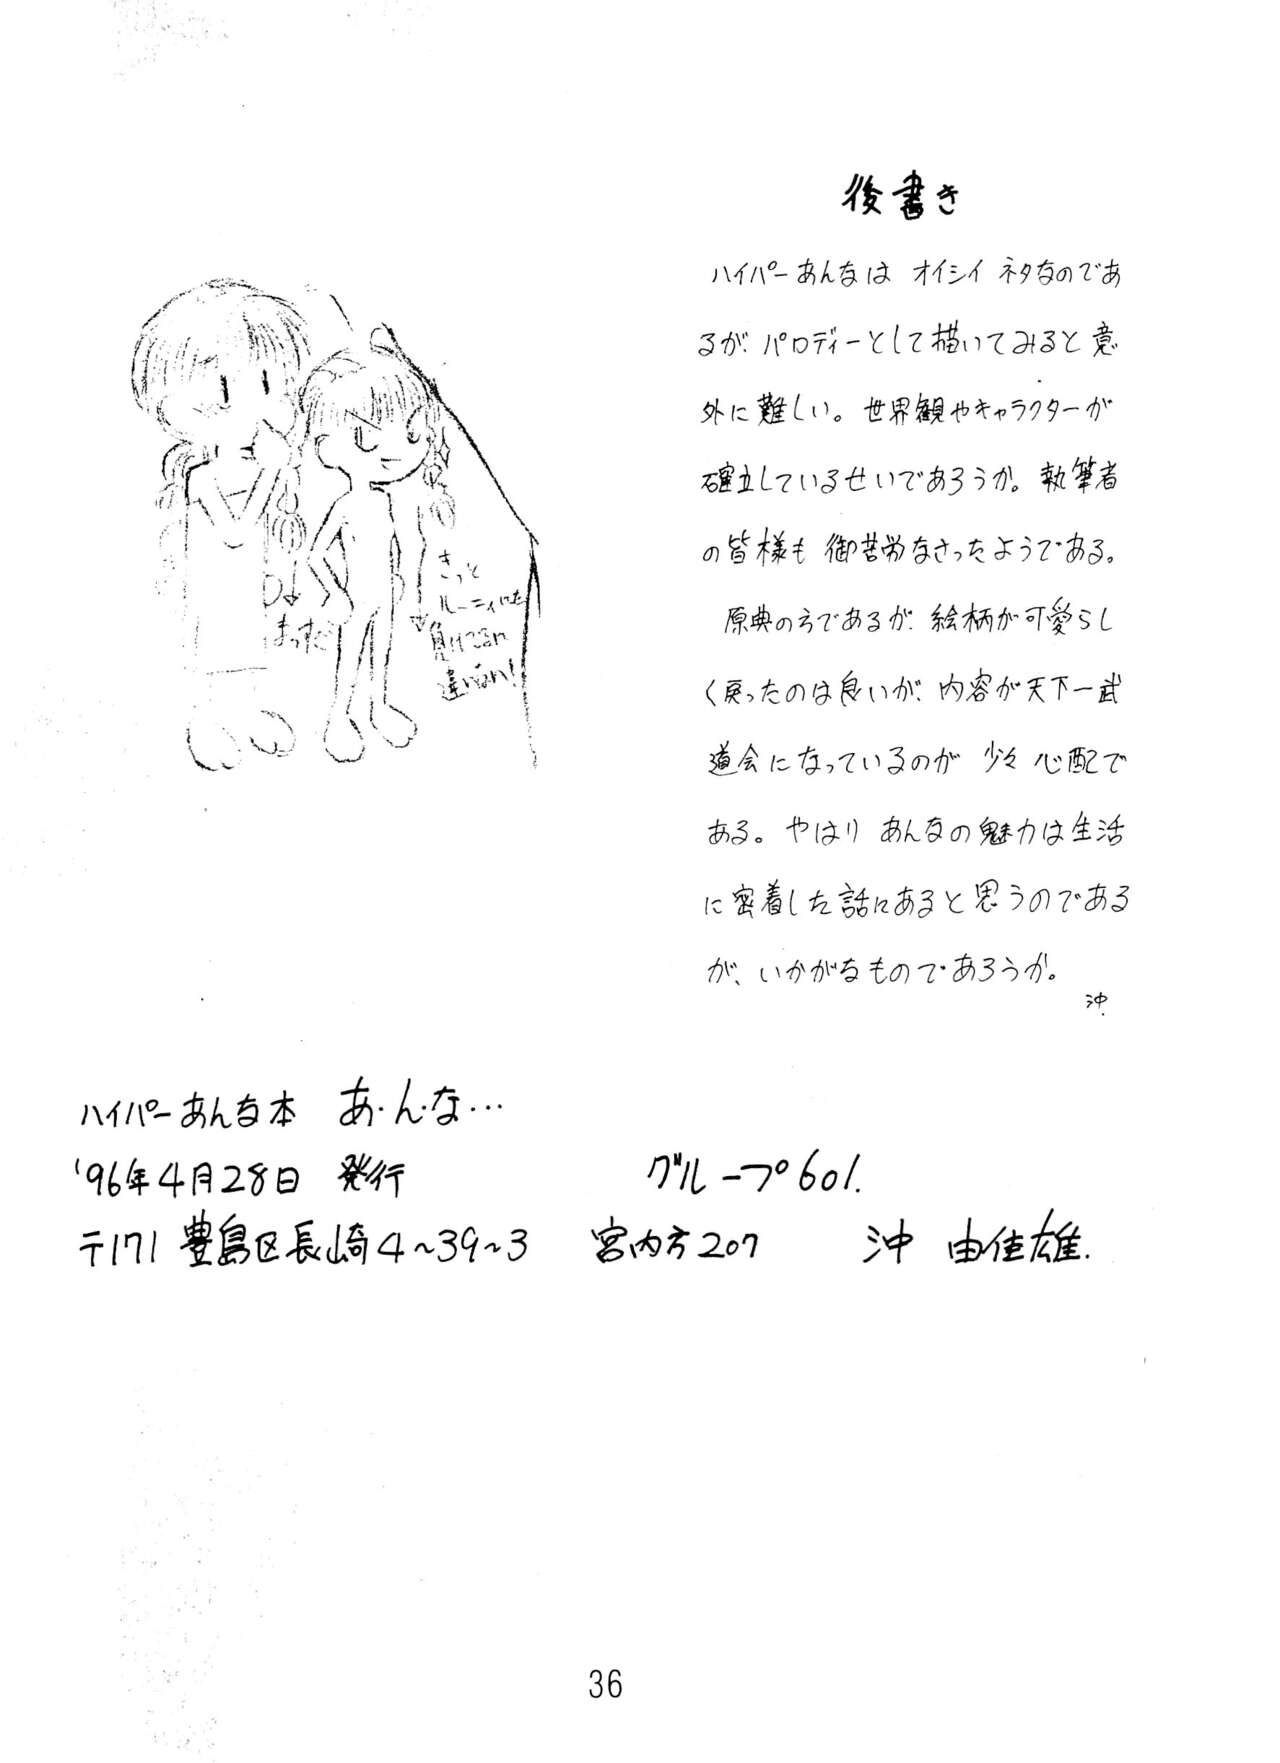 後書き
ハイパーあんなは オイシイ ネタなのであ
るが、パロディーとして描いてみると意
外に難しい。世界観やキャラクターが
確立しているせいであろうか。執筆者
の皆様も 御苦労なさったようである。
原典の方であるが、絵柄が可愛らし
く戻ったのは良いが、内容が天下一武
道会になっているのが 少々 心配で
ある。やはり あんなの魅力は生活
に密着した話にあると思うのである
が、いかがなものであろうか。
沖
きっと
ルーニィにだ
負けてるに
違いない!
ハイパーあんな本 あ・ん・な…
'96年4月28日 発行
グループ601.
〒171 豊島区長崎4~39~3 宮内方207 沖 由佳雄.
36